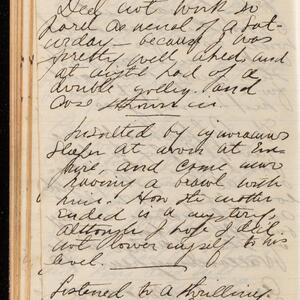 Did not work so
hard as usual of a Sat-
urday — because I was
pretty well
at night had of a
double and

Insulted by ignoramus
at noon at Em-
pire, and came near
having a brawl with
him. How the matter
ended is a mystery,
although I hope I did
not lower myself to his
level.

Listened to a thrilling